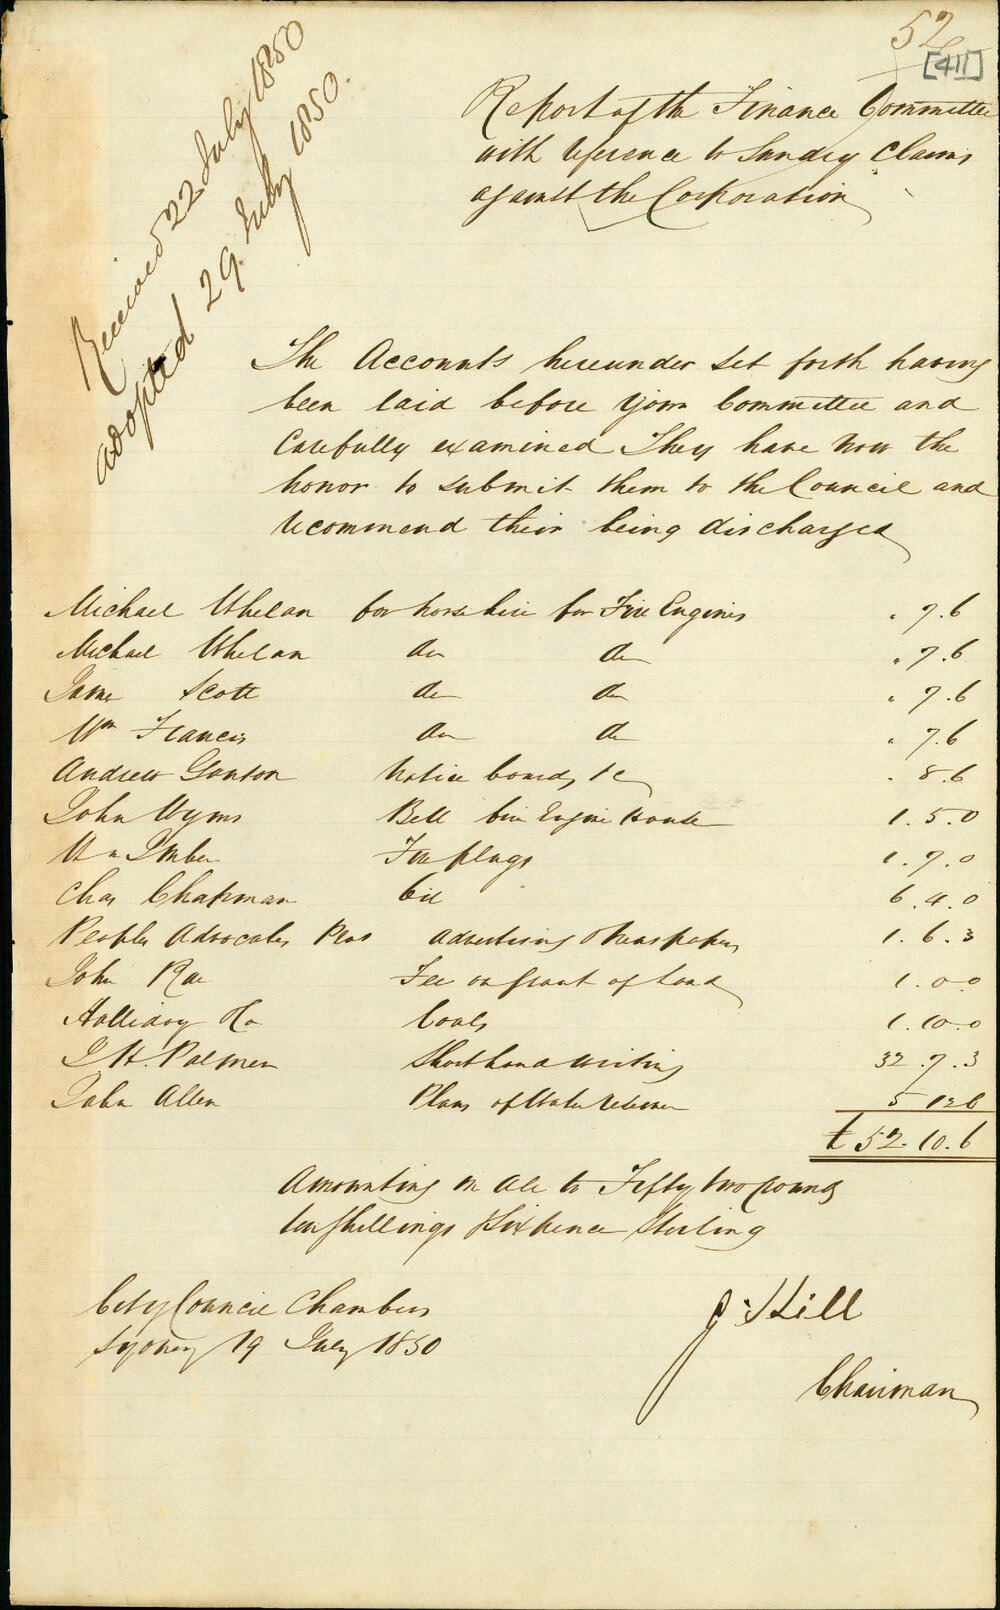 52
[411]
Received 22 July 1850
adopted 29 July 1850.
Report of the Finance Committee
with reference to Sundry Claims
against the Corporation
The Accounts hereunder set forth having
been laid before your Committee and
Carefully examined They have now the
honor to submit them to the Council and
recommend their being discharged
Michael Whelan for horse hire for Fire Engines " 7.6
Michael Whelan do do " 7.6
Jame Scott do do " 7.6
Wm Francis do do " 7.6
Andrew Notice boards, &c " 8.6
John Wyms Bell Engine House 1.5.0
Wm Fire plugs 1.7.0
Chas Chapman Oil 6.4.0
Peoples Advocates Advertising & Newspapers 1.6.3
John Rae Fee on grant of Land 1.0.0
Halliday & Co Coals 1.10.0
J H. Palmer Short hand writing 32.7.3
John Allen Plans of Water 5 12 6
£52.10.6
Amounting in all to Fifty two pounds
ten shillings & Sixpence Sterling
City Council Chambers
Sydney 19 July 1850
J. Hill
Chairman